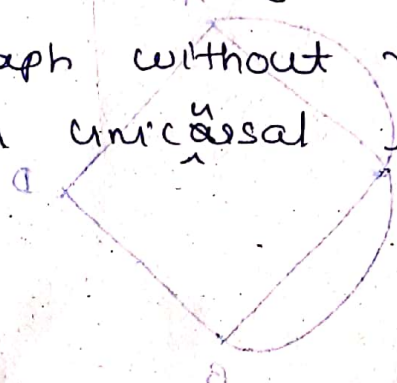 aph without
unicursal